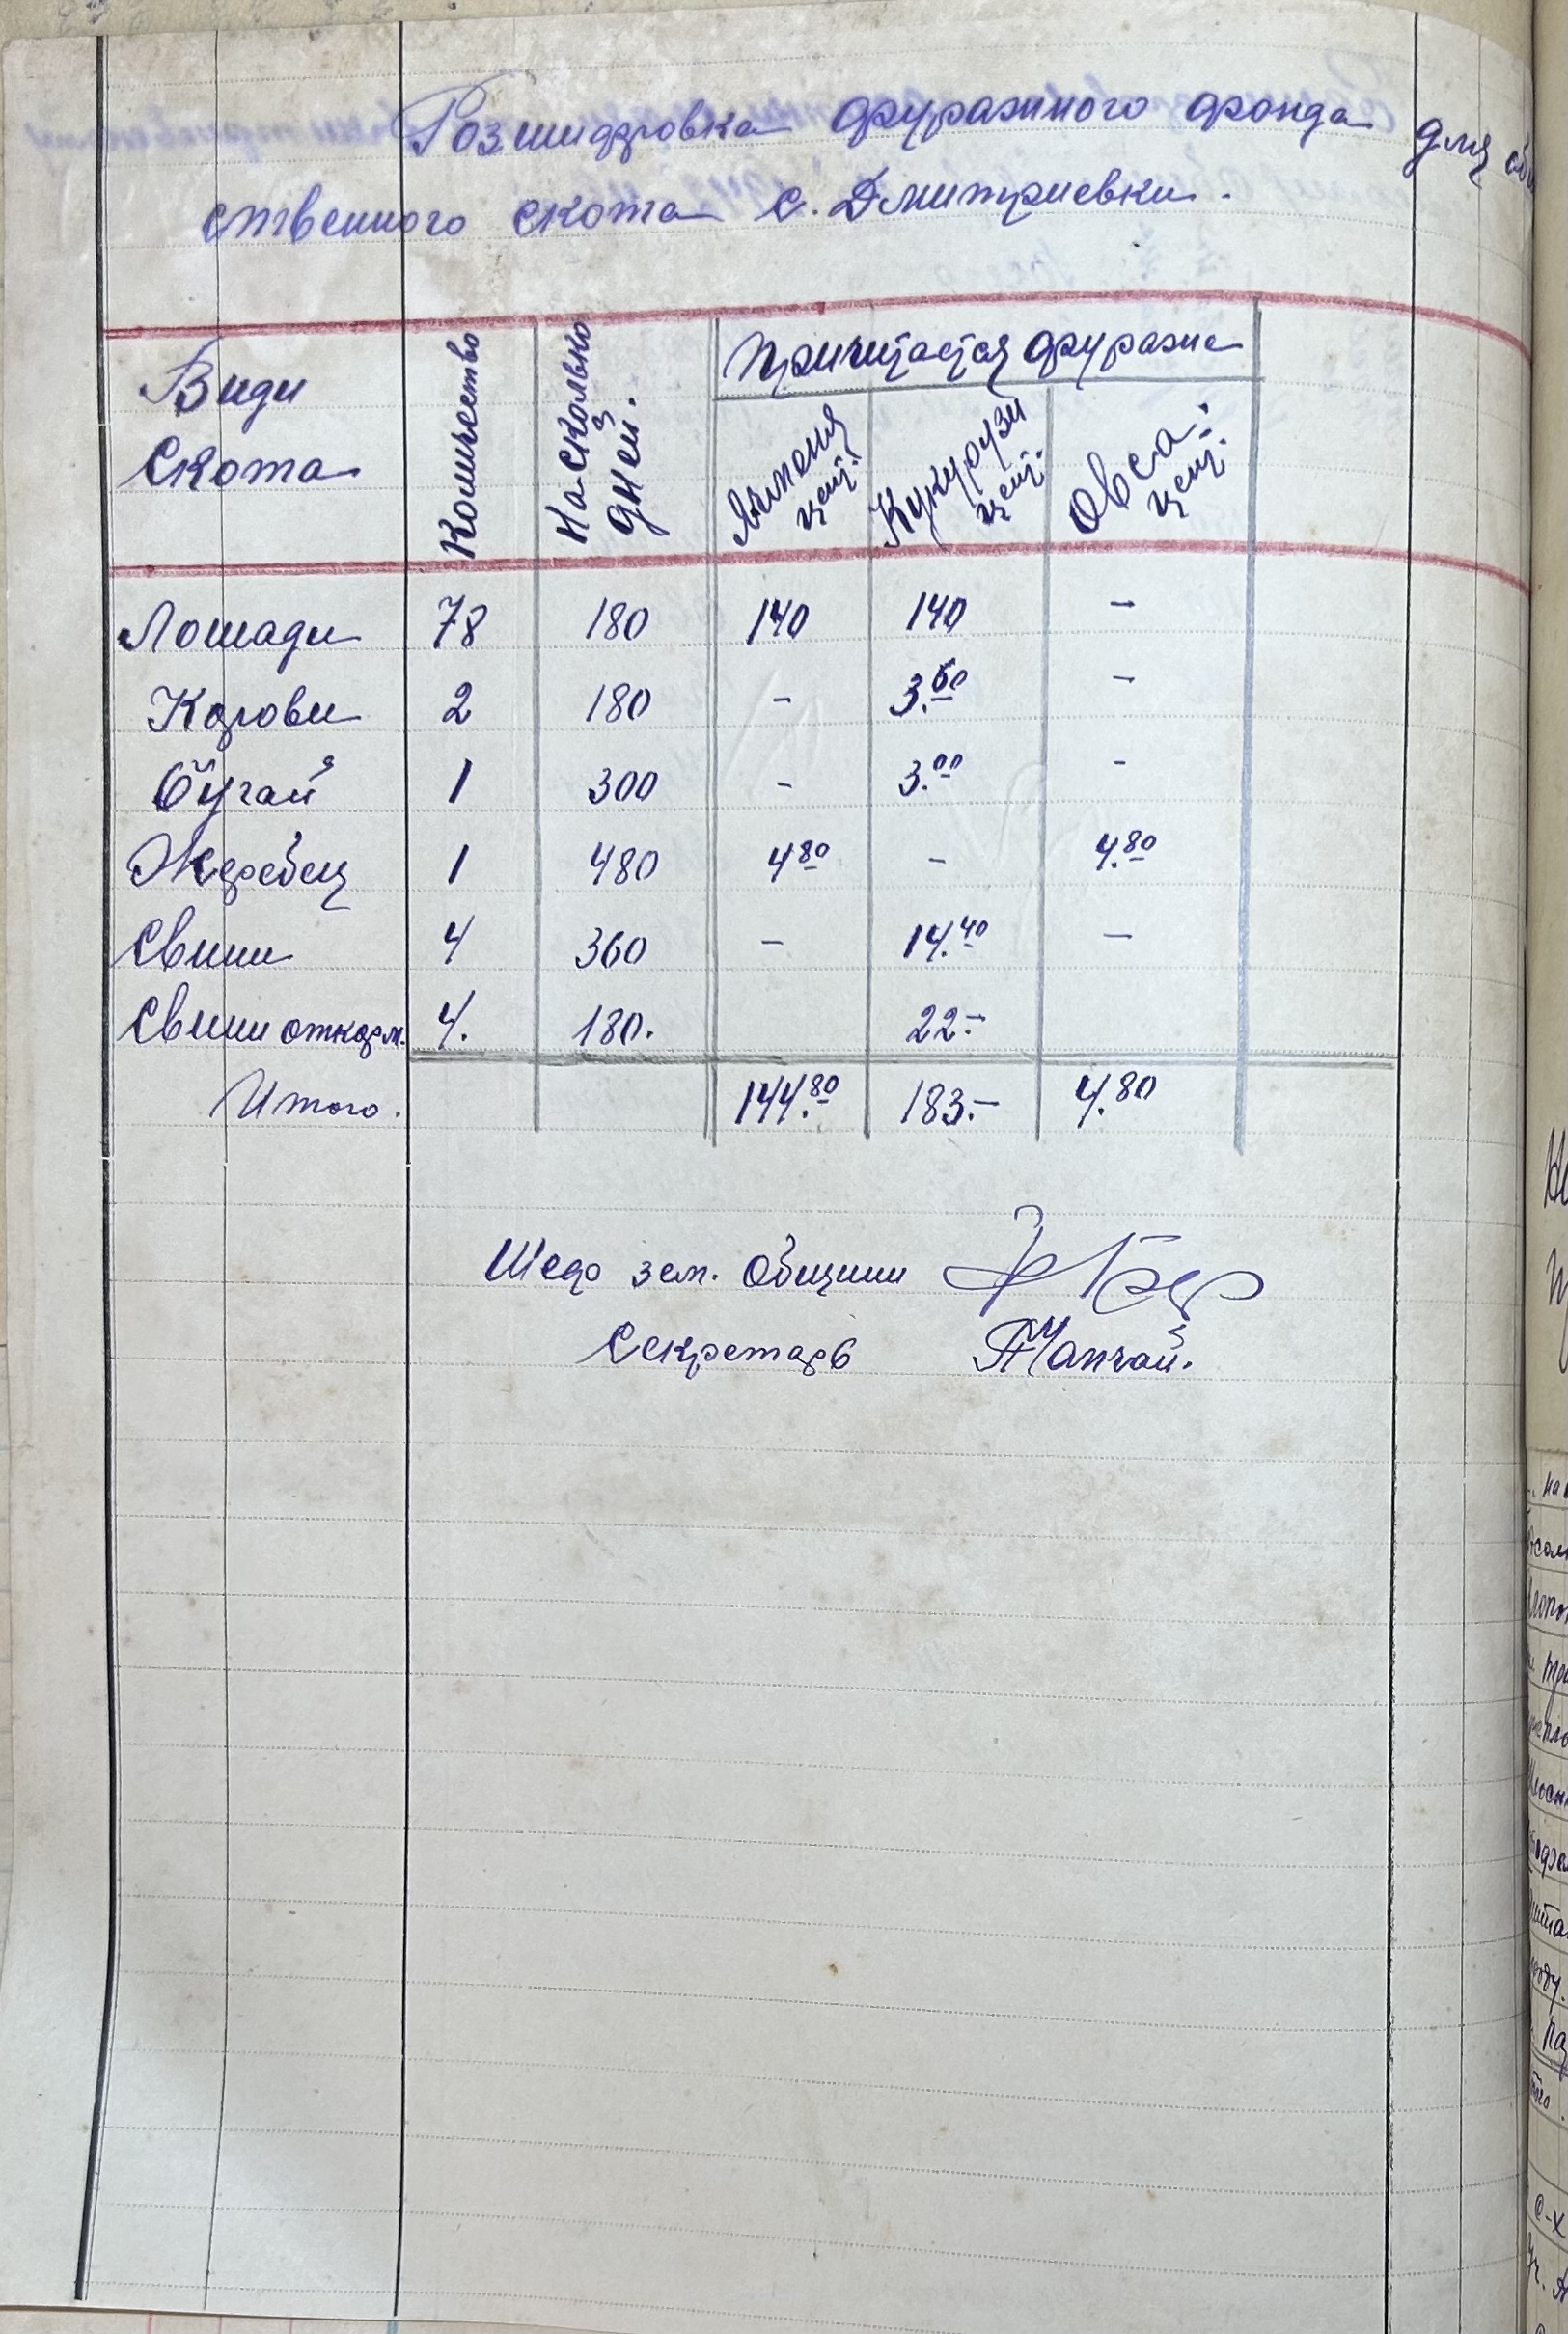 Розшифровка фуражного фонда для об
ственного скота с. Дмитриевки.
Види скота | Количество | На сколько дней. | Причитается фуража
Ячменя цент. | Кукурузи цент. | Овса цент.
Лошади 78 180 140 140 –
Корови 2 180 – 3.60 –
Бугай 1 300 – 3.00 –
Жеребец 1 480 4 80 – 4.80
Свини 4 360 – 14.40 –
Свини откорм. 4. 180. 22.–
Итого. 144.80 183.– 4.80
Шеф зем. общини
Секретарь